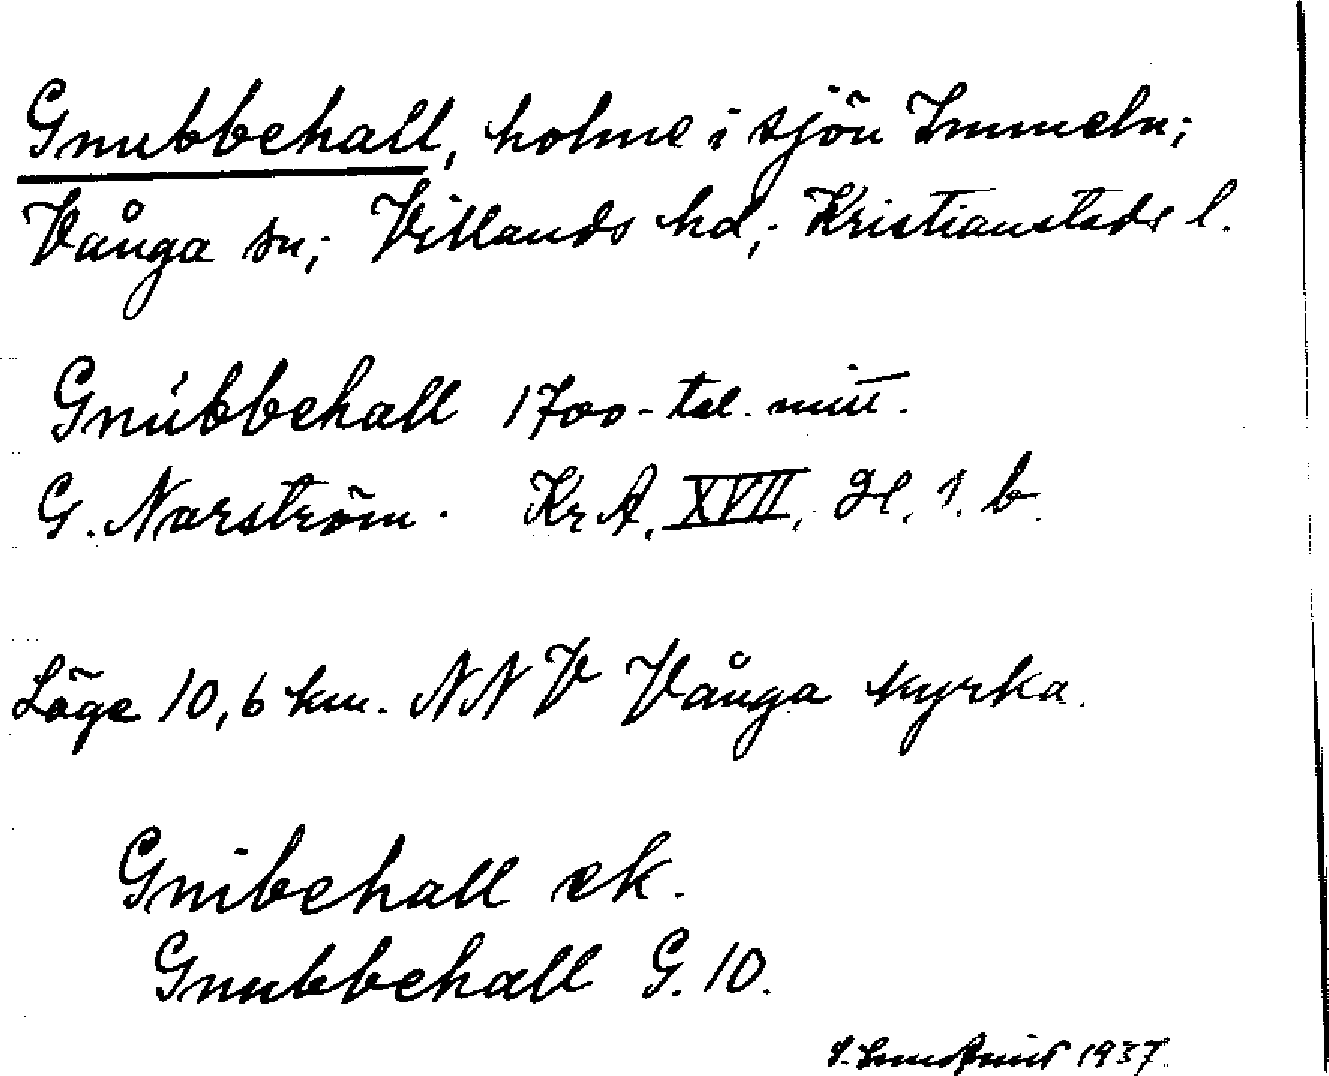 Gnubbehall, holme i sjön Immeln;
Vånga sn; Villands hd; Kristianstads l.
Gnúbbehall 1700-tal. mitt.
G. Narström. Kr A. XVII, H. 1. b.
Läge 10,6 km. NNV Vånga kyrka.
Gnibehall ek.
Gnubbehall G. 10.
1937